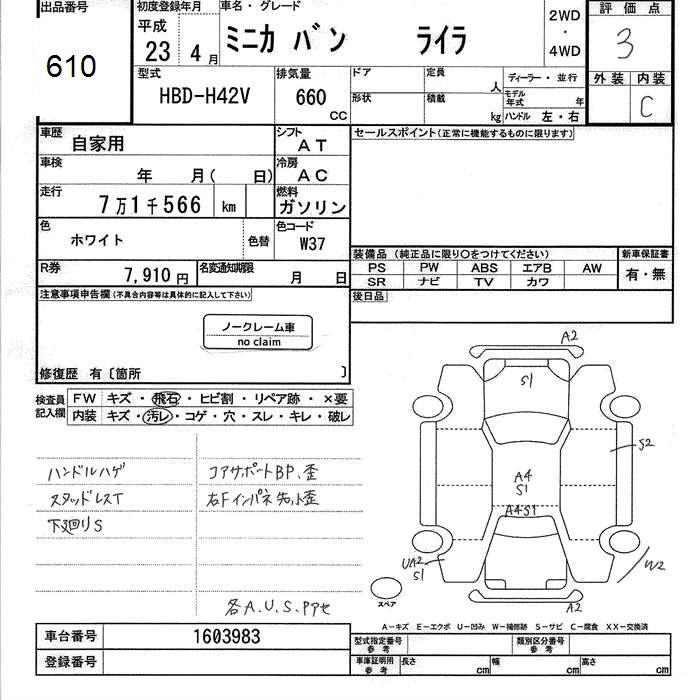 出品番号
610
初度登録年月
平成
23 4 月
車名・グレード
ミニカ バン ライラ
2WD
・
4WD
評価点
3
外装 内装
C
型式
HBD-H42V
排気量
660
CC
ドア
定員
人
ディーラー・並行
形状
積載
kg
モデル年式 年
ハンドル 左・右
車歴
自家用
シフト
AT
セールスポイント(正常に機能するものに限ります)
車検
年 月( 日)
冷房
AC
走行
7万1千566 km
燃料
ガソリン
色
ホワイト
色替
色コード
W37
装備品 (純正品に限り〇をつけてください)
新車保証書
PS PW ABS エアB AW
SR ナビ TV カワ
有・無
R券
7,910 円
名変通知期限
月 日
後日品
注意事項申告欄(不具合内容等は具体的に記入して下さい)
ノークレーム車
no claim
修復歴 有〔箇所 〕
検査員記入欄
FW キズ・飛石・ヒビ割・リペア跡・×要
内装 キズ・汚レ・コゲ・穴・スレ・キレ・破レ
ハンドルハゲ
スタッドレスT
下廻りS
コアサポートBP、歪
右Fインパネ先小歪
各A.U.S.Pアセ
A2
S1
S2
A4
S1
A4S1
UA2
S1
W2
A2
スペア
A−キズ E−エクボ U−凹み W−補修跡 S−サビ C−腐食 XX−交換済
車台番号
1603983
登録番号
型式指定番号
参考
類別区分番号
参考
車庫証明用
参考
長さ cm
幅 cm
高さ cm